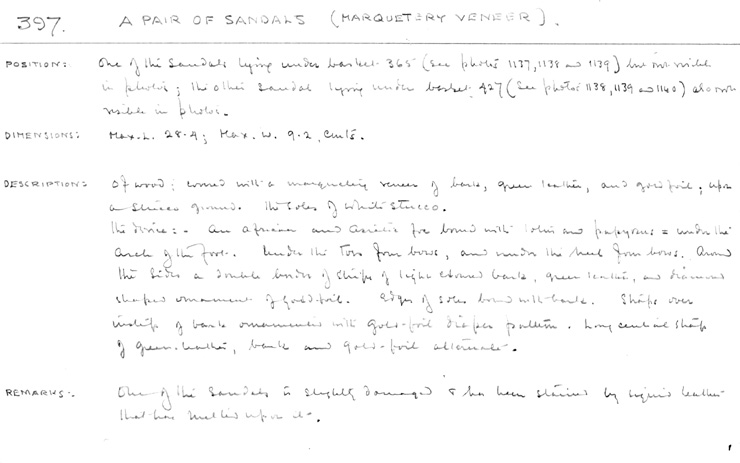 397. A PAIR OF SANDALS (MARQUETERY VENEER).
POSITION: One of the Sandals lying under basket 365 (see photos 1137, 1138 and 1139) but not visible
in photos; the other Sandal lying under basket 427 (see photos 1138, 1139 and 1140) also not
visible in photos.
DIMENSIONS: Max. L. 28.4; Max. W. 9.2, cents.
DESCRIPTION: Of wood; covered with a marquetery veneer of bark, green leather, and gold foil; upon
a stucco ground. The soles of white stucco.
The device:- An African and Asiatic foe bound with lotus and papyrus = under the
arch of the foot. Under the toes four bows, and under the heel four bows. Around
the sides a double border of strips of light coloured bark, green leather, and diamond
shaped ornament of gold-foil. Edges of soles bound with bark. Straps over
instep of bark ornamented with gold-foil diaper pattern. Long central strap
of green-leather, bark and gold-foil alternate.
REMARKS:. One of the Sandals is slightly damaged & has been stained by liquid leather
that has melted upon it.